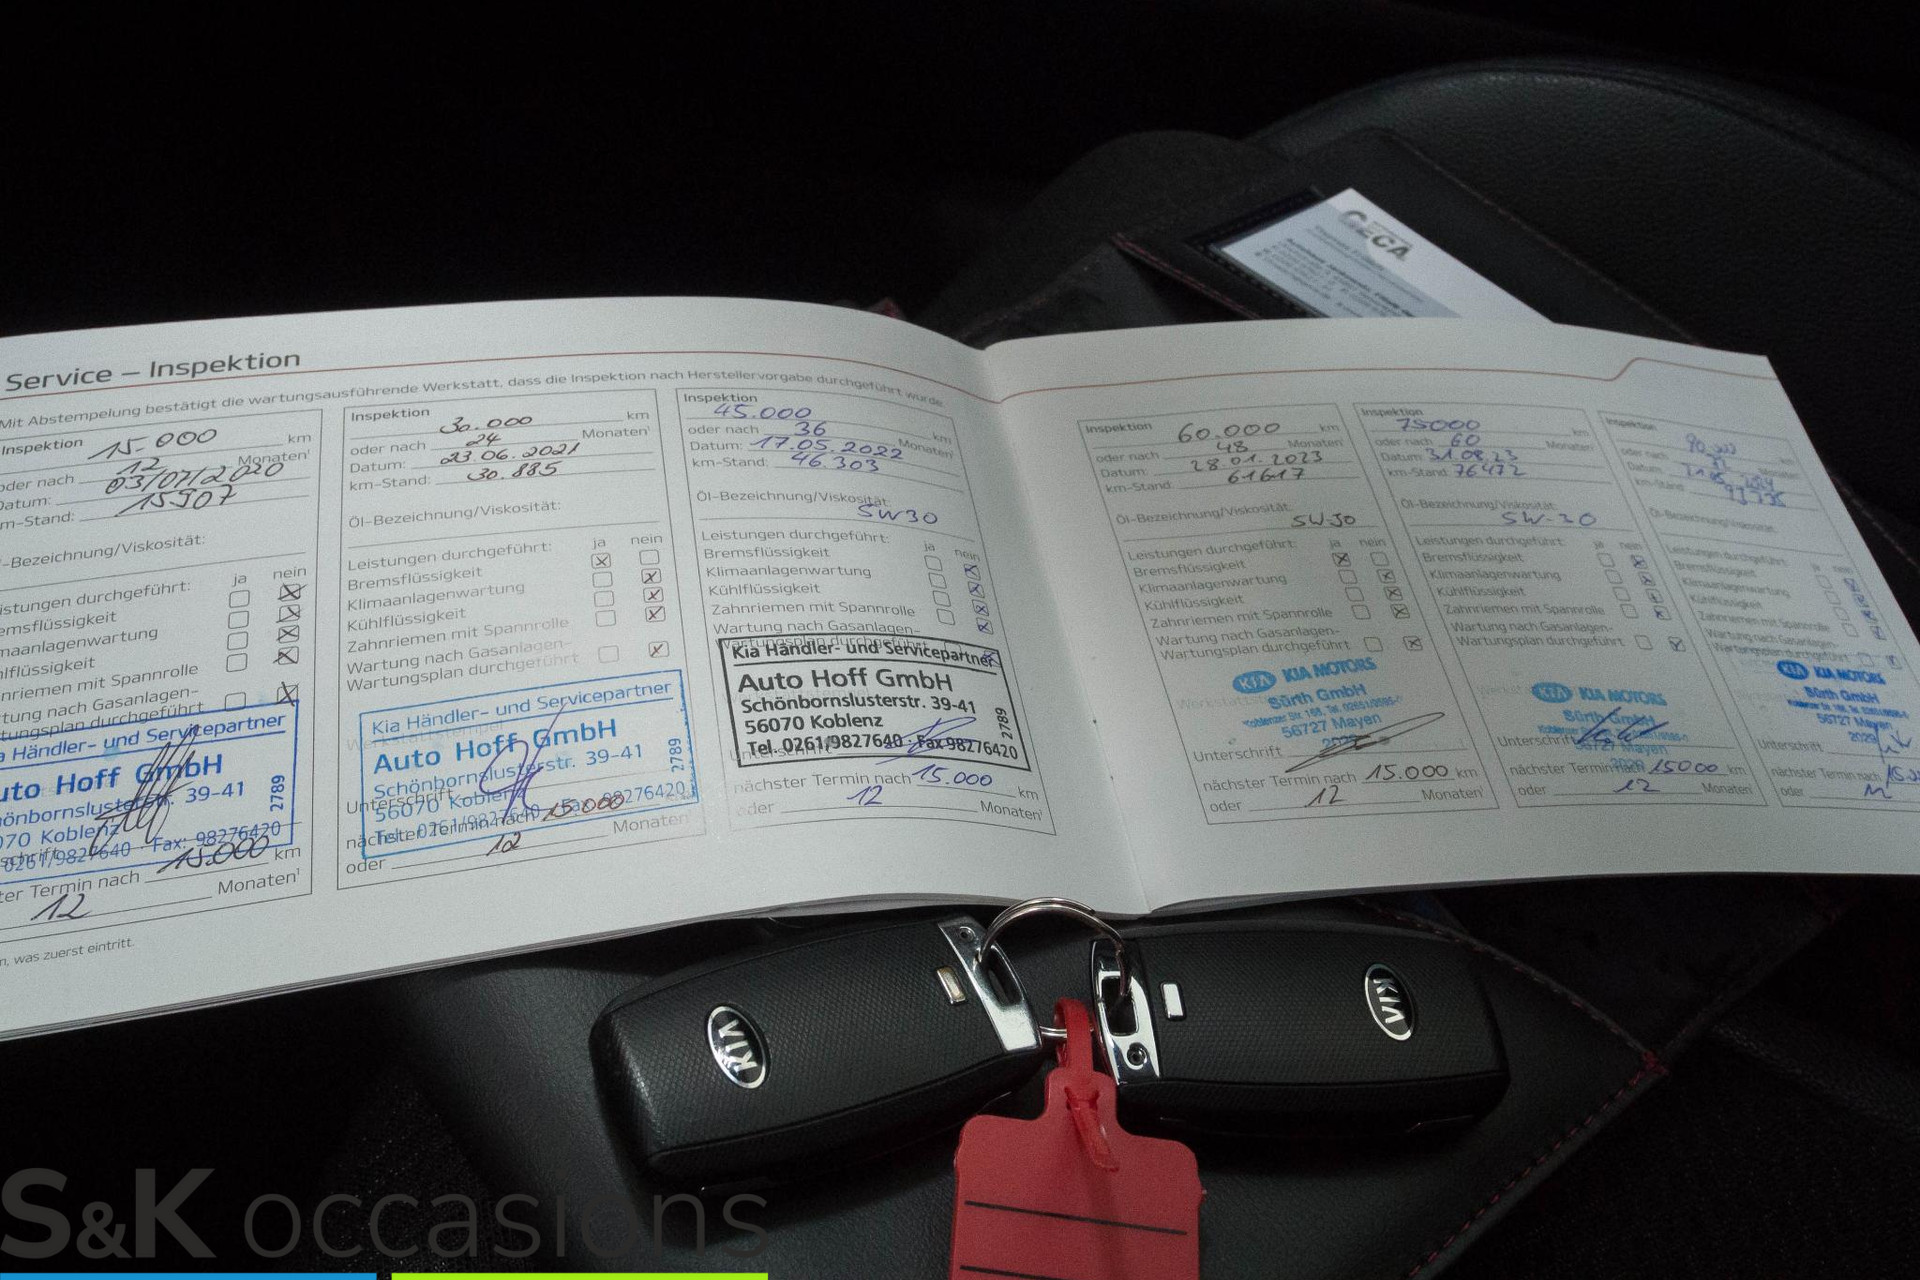 Service – Inspektion
Mit Abstempelung bestätigt die wartungsausführende Werkstatt, dass die Inspektion nach Herstellervorgabe durchgeführt wurde.
Inspektion 15.000 km
oder nach 12 Monaten¹
Datum: 03/07/2020
m-Stand: 15907
-Bezeichnung/Viskosität:
istungen durchgeführt: ja nein
emsflüssigkeit
maanlagenwartung
hlflüssigkeit
nriemen mit Spannrolle
tung nach Gasanlagen-
tungsplan durchgeführt
a Händler- und Servicepartner
uto Hoff GmbH
hönbornslusterstr. 39-41
070 Koblenz
0261/9827640 · Fax: 98276420
2789
schrift
ter Termin nach 15.000 km
12 Monaten¹
n, was zuerst eintritt.
Inspektion 30.000 km
oder nach 24 Monaten¹
Datum: 23.06.2021
km-Stand: 30.885
Öl-Bezeichnung/Viskosität:
Leistungen durchgeführt: ja nein
Bremsflüssigkeit
Klimaanlagenwartung
Kühlflüssigkeit
Zahnriemen mit Spannrolle
Wartung nach Gasanlagen-
Wartungsplan durchgeführt
Kia Händler- und Servicepartner
Auto Hoff GmbH
Schönbornslusterstr. 39-41
56070 Koblenz
Tel. 0261/9827640 · Fax: 98276420
2789
Unterschrift
nächster Termin nach 15.000
oder 12 Monaten¹
Inspektion 45.000 km
oder nach 36 Monaten¹
Datum: 17.05.2022
km-Stand: 46.303
Öl-Bezeichnung/Viskosität:
5W30
Leistungen durchgeführt: ja nein
Bremsflüssigkeit
Klimaanlagenwartung
Kühlflüssigkeit
Zahnriemen mit Spannrolle
Wartung nach Gasanlagen-
Wartungsplan durchgeführt
Kia Händler- und Servicepartner
Auto Hoff GmbH
Schönbornslusterstr. 39-41
56070 Koblenz
Tel. 0261/9827640 · Fax 98276420
2789
nächster Termin nach 15.000 km
oder 12 Monaten¹
Inspektion 60.000 km
oder nach 48 Monaten¹
Datum: 28.01.2023
km-Stand: 61617
Öl-Bezeichnung/Viskosität:
5W30
Leistungen durchgeführt: ja nein
Bremsflüssigkeit
Klimaanlagenwartung
Kühlflüssigkeit
Zahnriemen mit Spannrolle
Wartung nach Gasanlagen-
Wartungsplan durchgeführt
KIA MOTORS
Sürth GmbH
56727 Mayen
2029
Unterschrift
nächster Termin nach 15.000 km
oder 12 Monaten¹
Inspektion 75000 km
oder nach 60 Monaten¹
Datum: 31.08.23
km-Stand: 76472
Öl-Bezeichnung/Viskosität:
5W-30
Leistungen durchgeführt: ja nein
Bremsflüssigkeit
Klimaanlagenwartung
Kühlflüssigkeit
Zahnriemen mit Spannrolle
Wartung nach Gasanlagen-
Wartungsplan durchgeführt
KIA MOTORS
Sürth GmbH
56727 Mayen
2029
Unterschrift
nächster Termin nach 15000 km
oder 12 Monaten¹
Inspektion km
oder nach Monaten
Datum
km-Stand
Öl-Bezeichnung/Viskosität:
Leistungen durchgeführt: ja nein
Bremsflüssigkeit
Klimaanlagenwartung
Kühlflüssigkeit
Zahnriemen mit Spannrolle
Wartung nach Gasanlagen-
Wartungsplan durchgeführt
KIA MOTORS
Sürth GmbH
56727 Mayen
2029
Unterschrift
nächster Termin nach
oder
GECA
KIA
KIA
S&K occasions